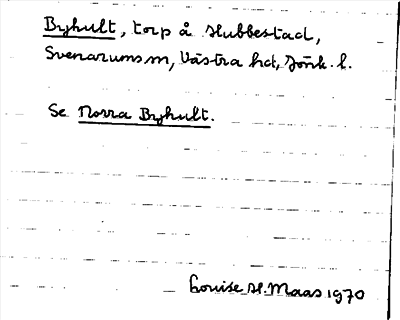 Byhult, torp å Hubbestad,
Svenarums sn, Västra hd, Jönk. l.
Se Norra Byhult.
Louise H. Maas 1970